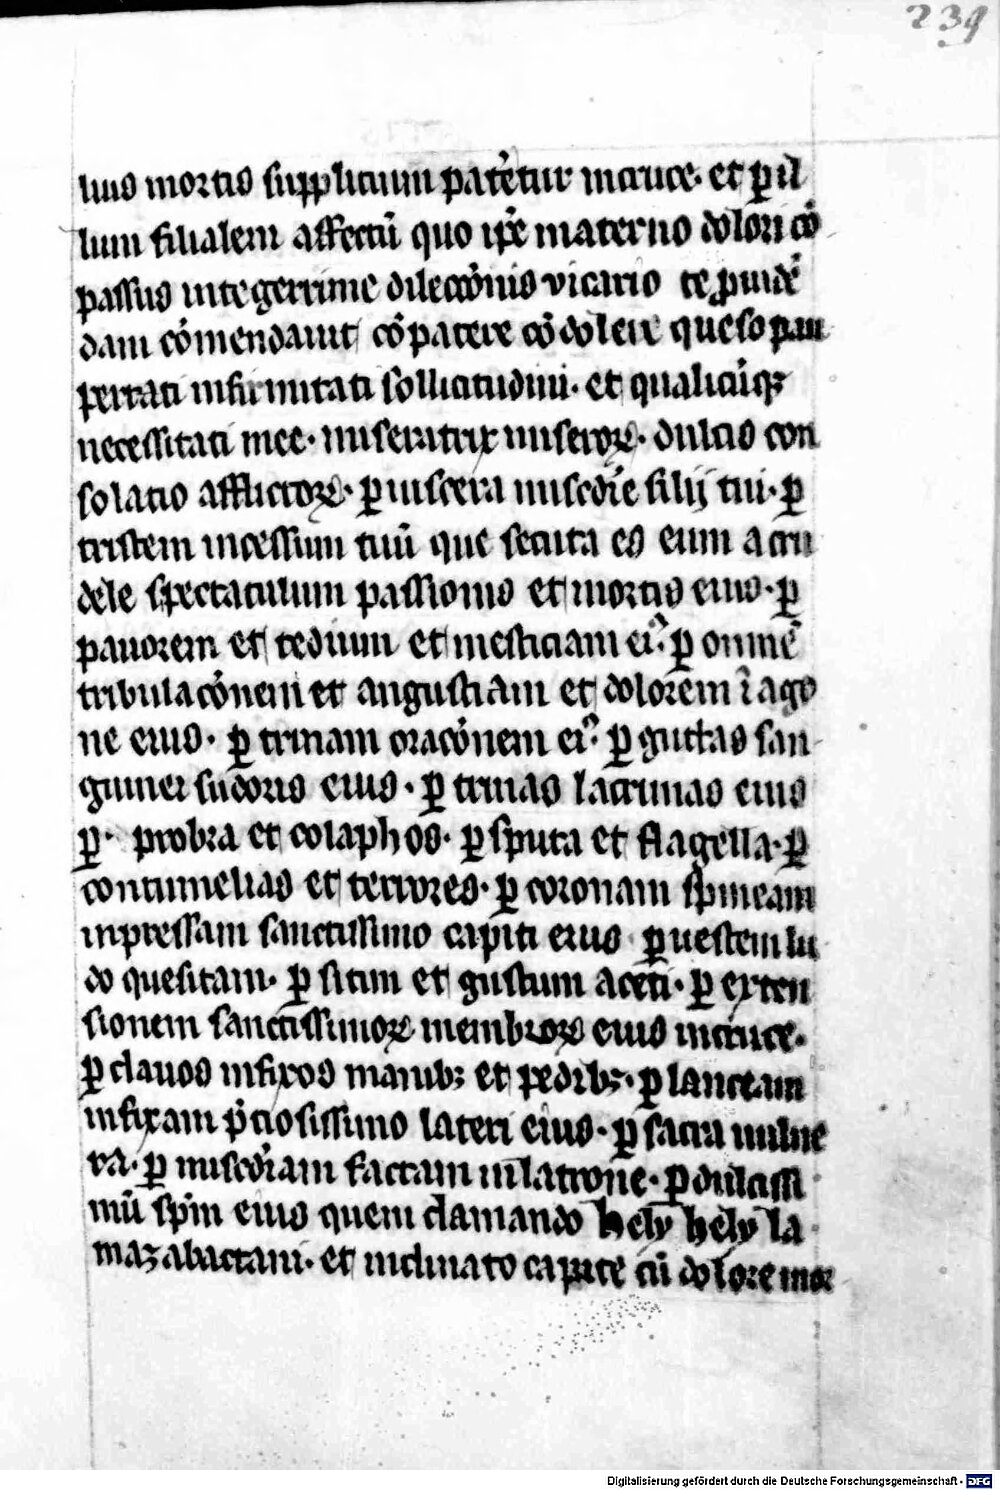 239
lius mortis supplicium pateretur in cruce· et ꝑ il
lum filialem affectū quo ip̄e materno dolori cō
passus integerrime dilecc̄onis vicario te ꝓuidē
dam cōmendauit cōpatere cōdolere queso pau
pertati infirmitati sollicitudini· et qualicūqꝫ
necessitati mee· miseratrix miseroꝝ· dulcis con
solatio afflictoꝝ· ꝑ viscera misc̄die filij tui· ꝑ
tristem incessum tuū que secuta es eum ad cru
dele spectaculum passionis et mortis eius· ꝑ
pauorem et tedium et mesticiam eiꝰ· ꝑ omnē
tribulac̄onem et angustiam et dolorem ī ago
ne eius· ꝑ trinam orac̄onem eiꝰ· ꝑ guttas san
guinei sudoris eius· ꝑ trinas lacrimas eius
ꝑ· probra et colaphos· ꝑ sputa et flagella· ꝑ
contumelias et terrores· ꝑ coronam spineam
inpressam sanctissimo capiti eius ꝑ vestem lu
do quesitam· ꝑ sitim et gustum aceti· ꝑ exten
sionem sanctissimoꝝ membroꝝ eius in cruce·
ꝑ clauos infixos manibꝫ et pedibꝫ· ꝑ lanceam
infixam p̄ciosissimo lateri eius· ꝑ sacra vulne
ra· ꝑ misc̄diam factam in latrone· ꝑ dulcissi
mū spm̄ eius quem clamando hely hely la
mazabactani· et inclinato capite cū dolore mor
Digitalisierung gefördert durch die Deutsche Forschungsgemeinschaft - DFG